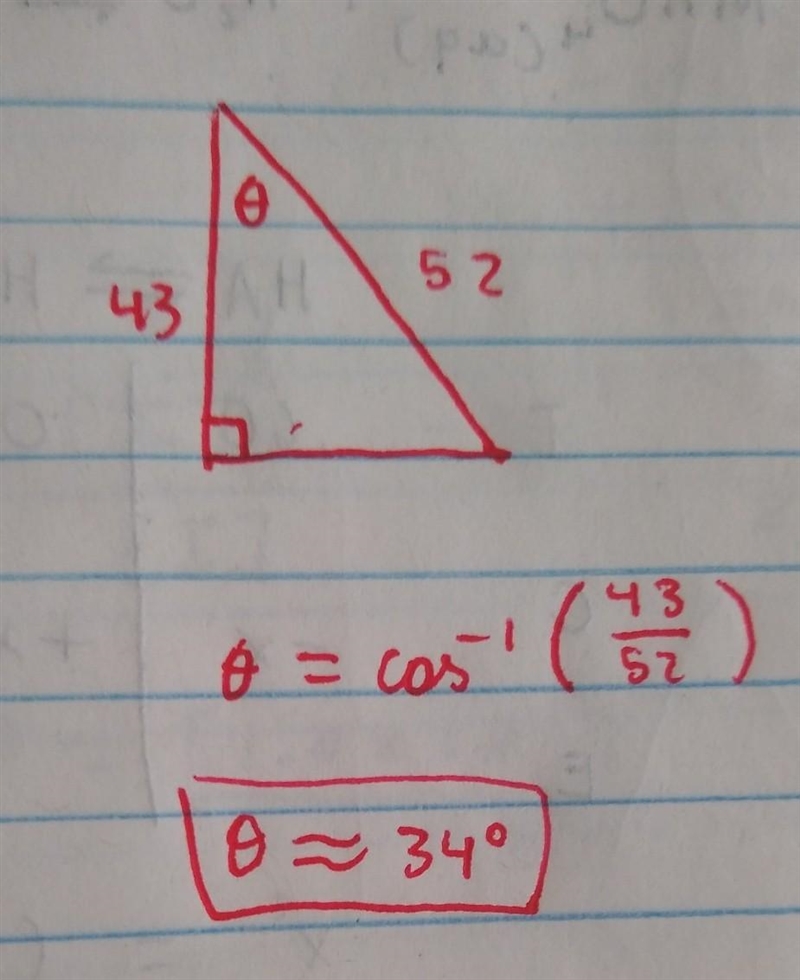 θ
43
52
θ = cos⁻¹ (43/52)
θ ≈ 34°